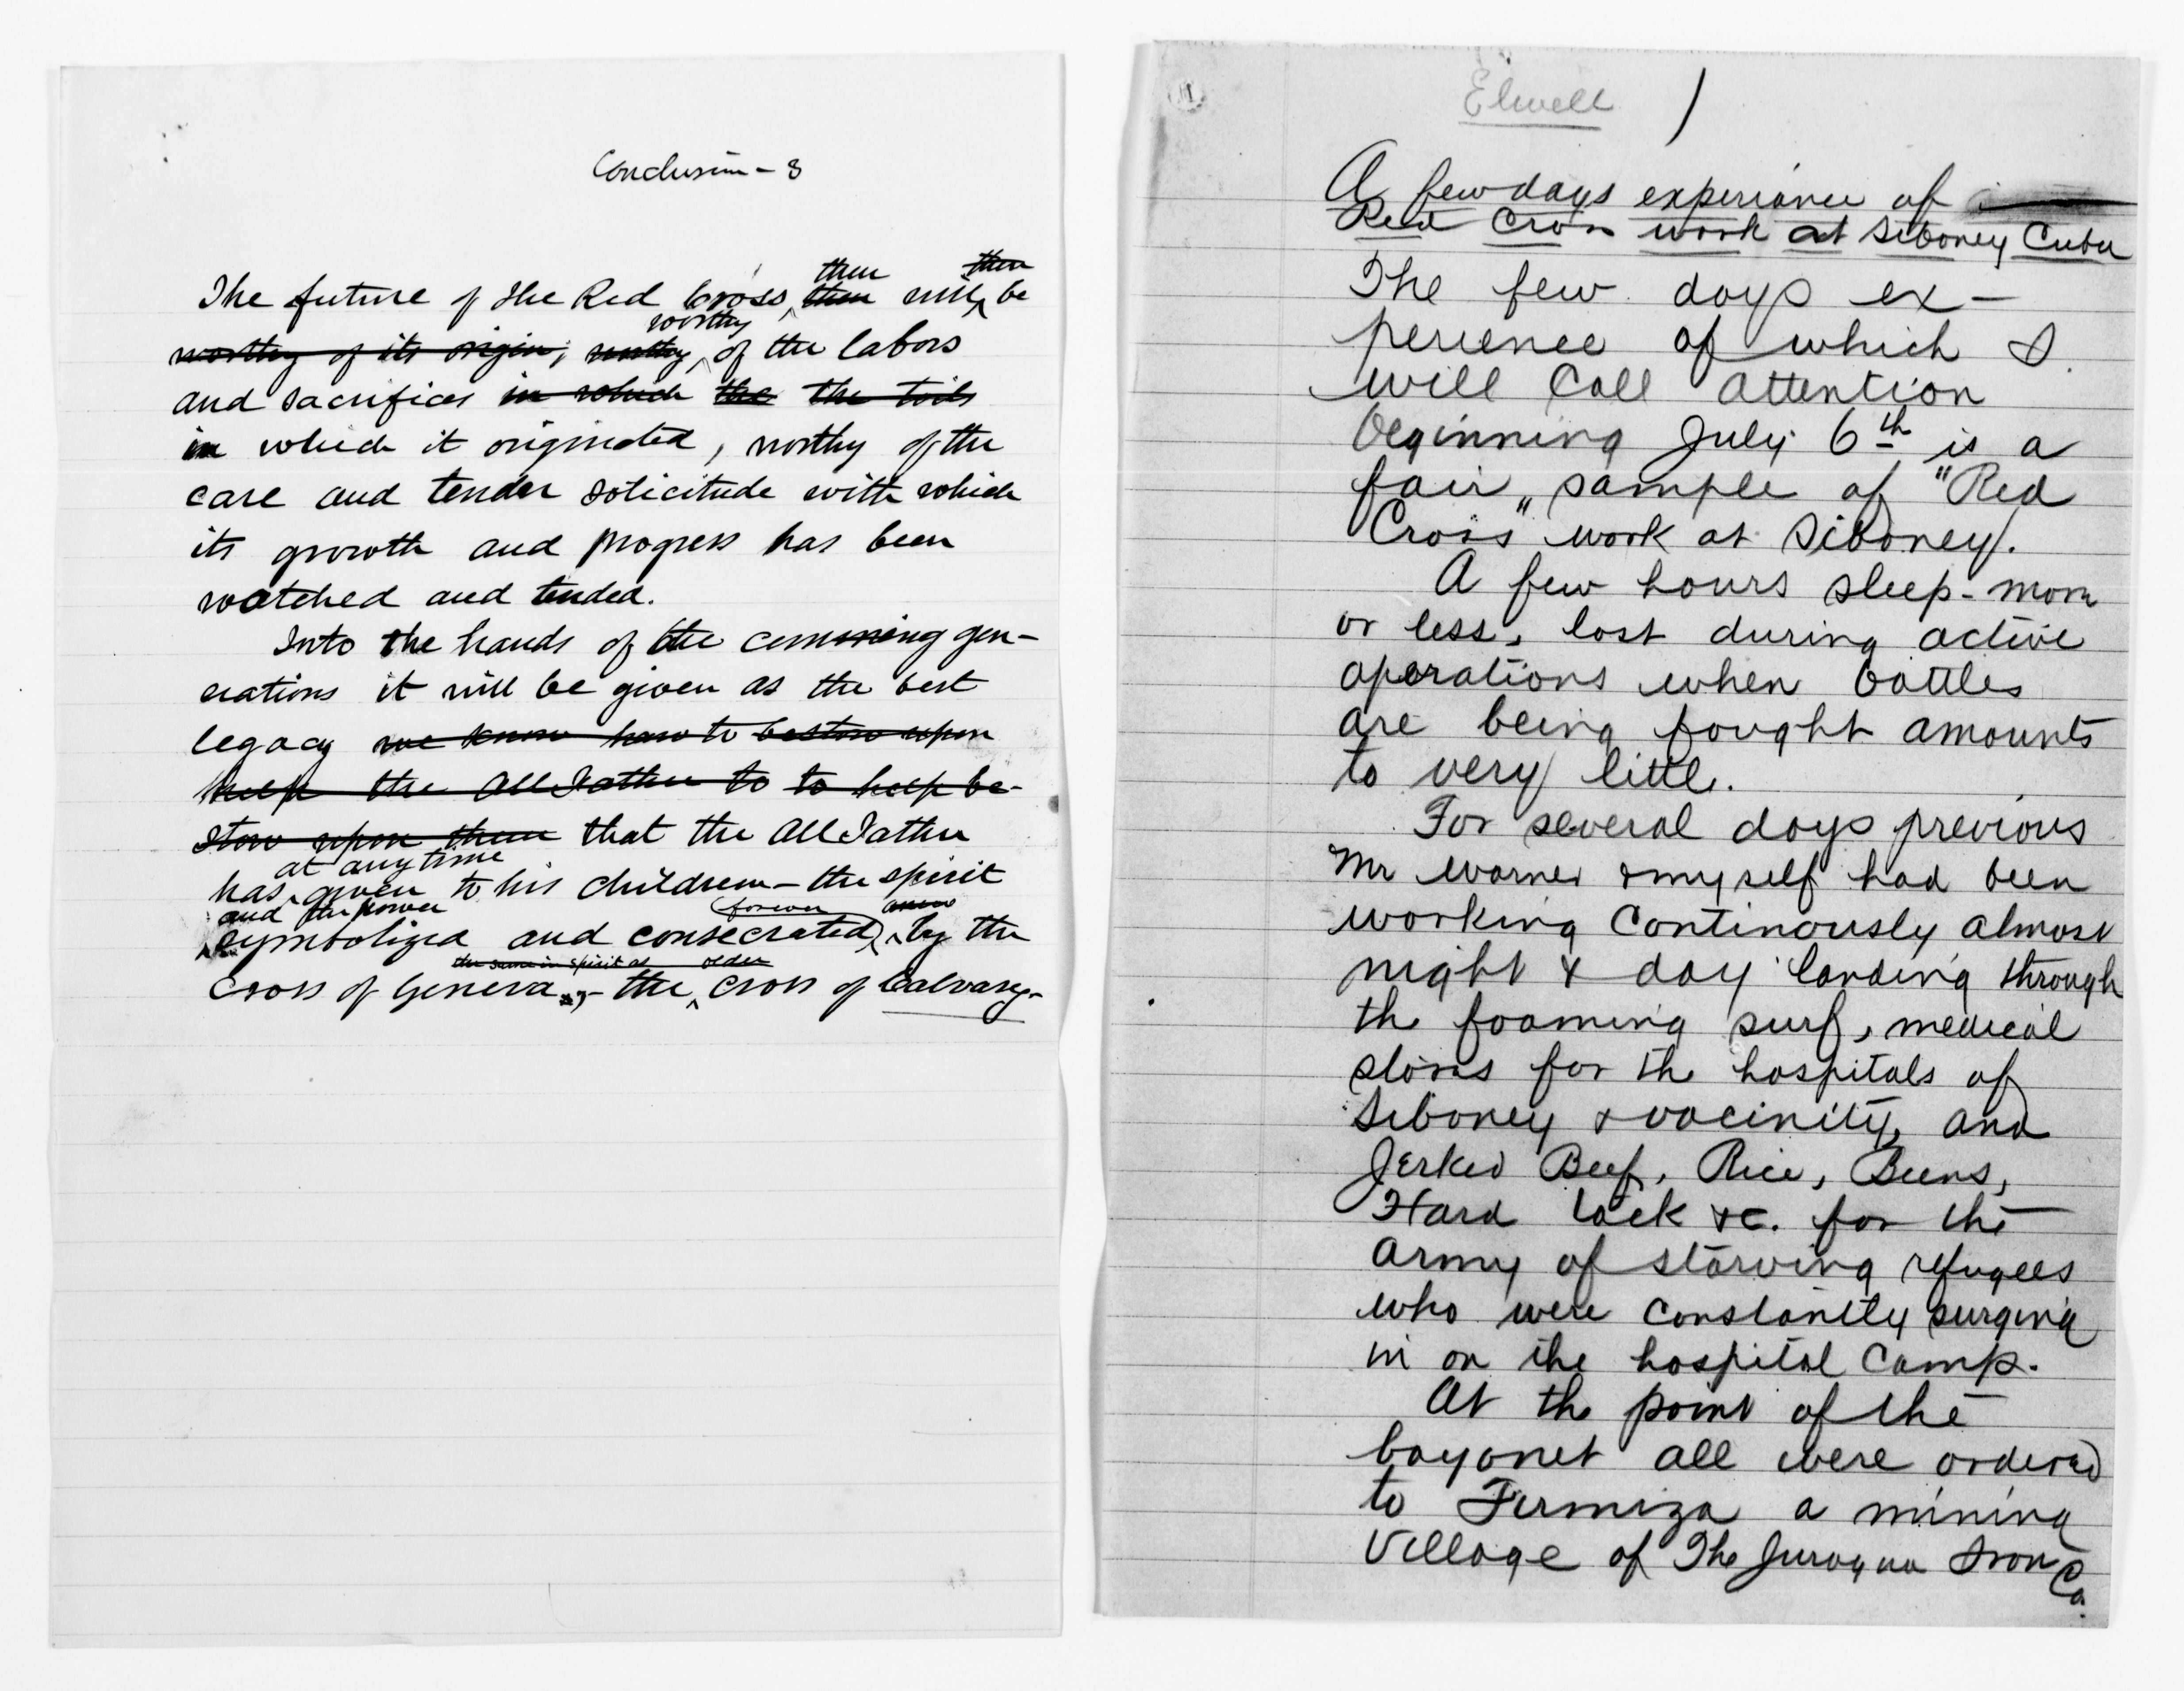 Conclusion - 3
then then
The future of the Red Cross, then will be
worthy
worthy of its origin; worthy of the labors
and sacrifices in which the the toils
in which it originated, worthy of the
care and tender solicitude with which
its growth and progress has been
watched and tended.
Into the hands of the comming gen-
erations it will be given as the best
legacy we know how to bestow upon
help the All Father to to help be-
stow upon them that the All Father
at any time
has given to his children - the spirit
and the power forever anew
symbolized and consecrated, by the
the same in spirit as older
Cross of Geneva, - the Cross of Calvary -
Elwell 1
A few days experiance of
Red Cross work at Siboney Cuba
The few days ex-
perience of which I
will call attention
beginning July 6th is a
fair sample of "Red
Cross" work at Siboney.
A few hours sleep - more
or less, lost during active
operations when battles
are being fought amounts
to very little.
For several days previous
Mr Warner & myself had been
working continously almost
night & day landing through
the foaming surf, medical
stores for the hospitals of
Siboney & vacinity, and
Jerked Beef, Rice, Beens,
Hard tack &c. for the
army of starving refugees
who were constantly surging
in on the hospital camp.
At the point of the
bayonet all were ordered
to Firmiza a mining
Village of The Juragua Iron Co.